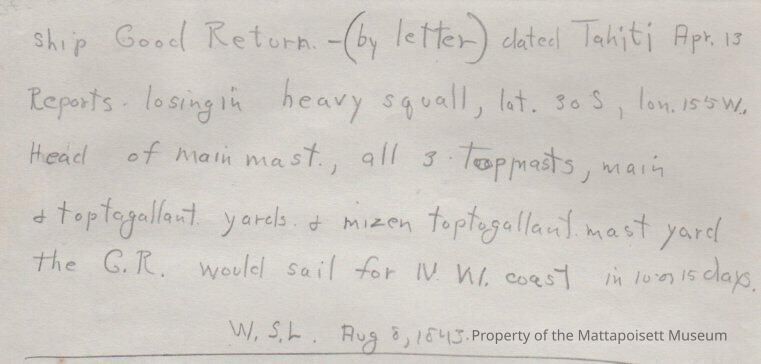 ship Good Return. -(by letter) dated Tahiti Apr. 13
Reports. losing in heavy squall, lat. 30 S, lon. 155 W.,
Head of main mast., all 3 topmasts, main
& toptagallant. yards. & mizen toptagallant. mast yard
the G.R. would sail for N. W. coast in 10 or 15 days.
W.S.L. Aug 8, 1843. Property of the Mattapoisett Museum